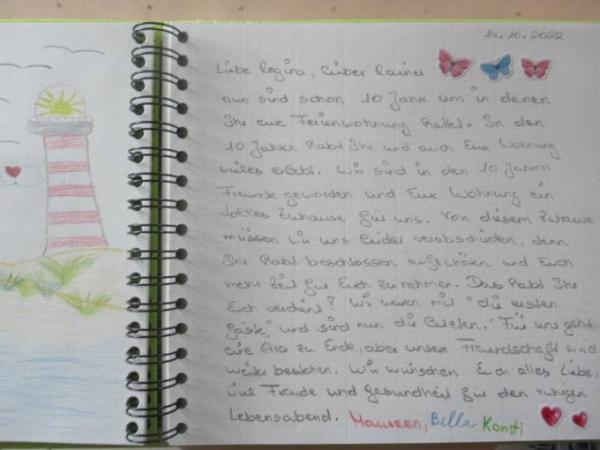 14.10.2022
Liebe Regina, lieber Rainer
nun sind schon 10 Jahre um in denen
Ihr eure Ferienwohnung hattet. In den
10 Jahren habt Ihr und auch Eure Wohnung
vieles erlebt. Wir sind in den 10 Jahren
Freunde geworden und Eure Wohnung ein
tolles Zuhause für uns. Von diesem Zuhause
müssen wir uns leider verabschieden, denn
Ihr habt beschlossen aufzuhören und Euch
mehr Zeit für Euch zu nehmen. Das habt Ihr
Euch verdient! Wir waren mit "die ersten
Gäste" und sind nun die letzten. Für uns geht
eine Ära zu Ende, aber unsere Freundschaft wird
weiter bestehen. Wir wünschen Euch alles Liebe,
viel Freude und Gesundheit für den ruhigen
Lebensabend. Maureen, Bella Konsti